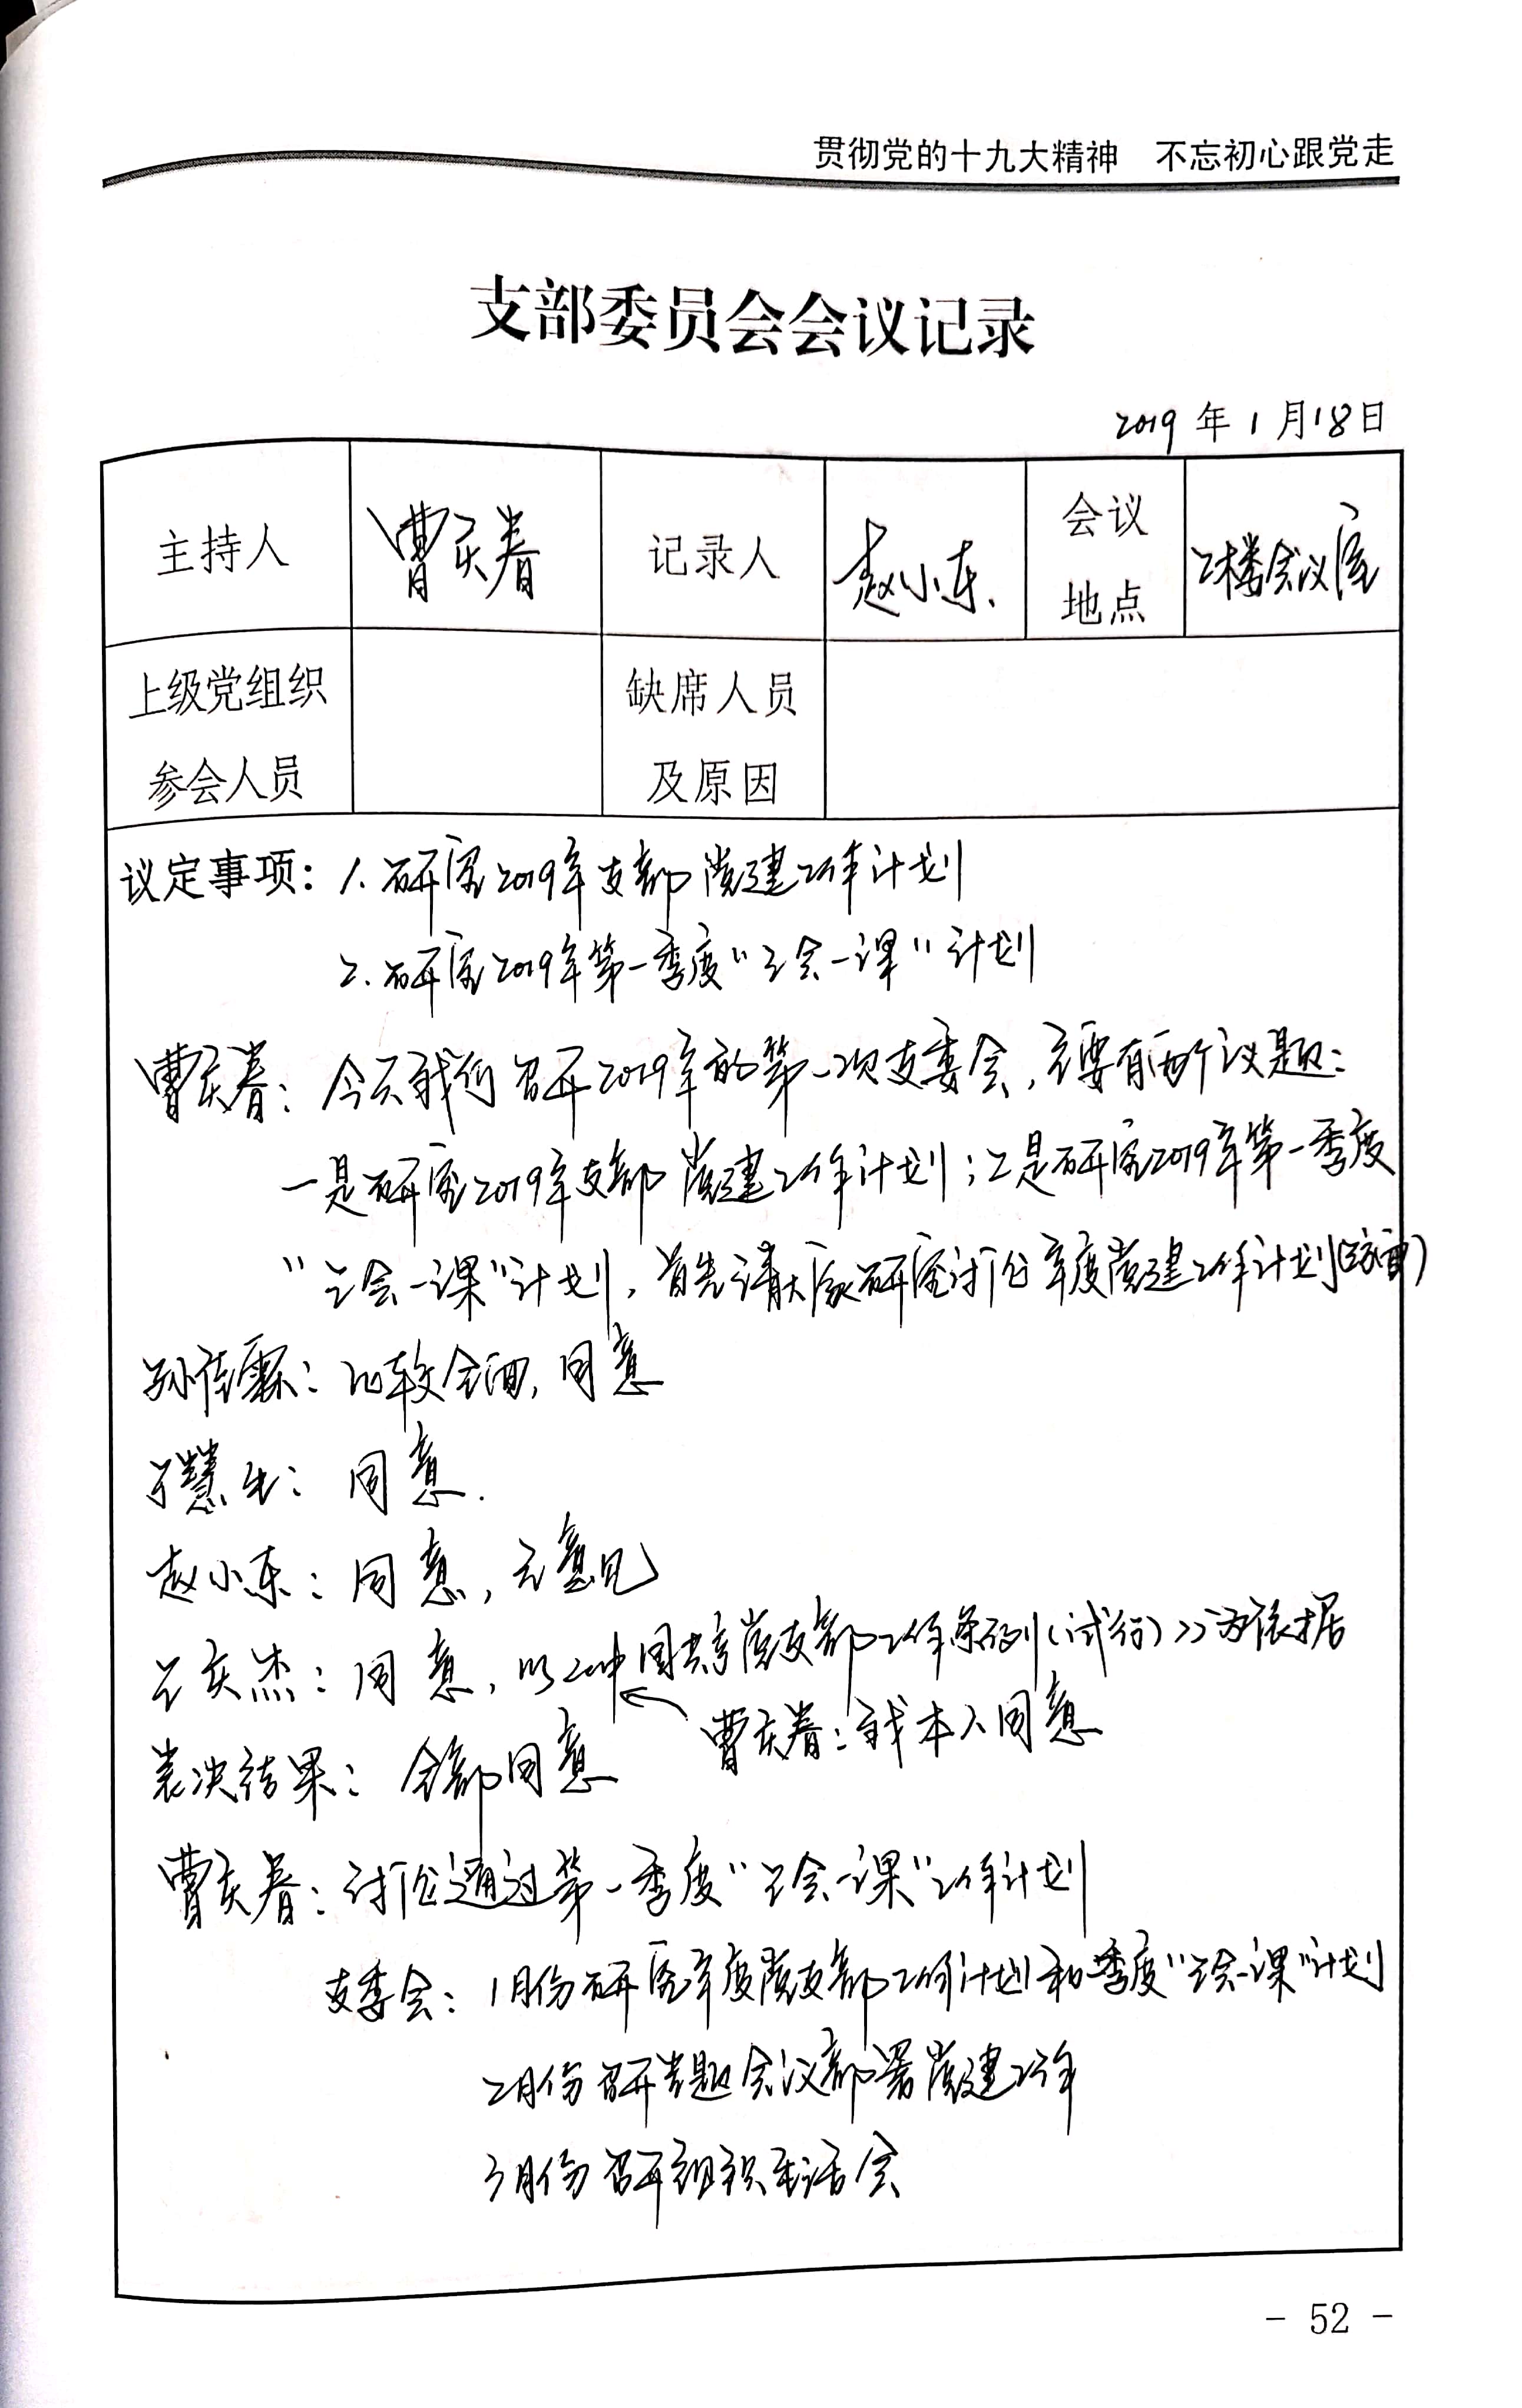 贯彻党的十九大精神 不忘初心跟党走
支部委员会会议记录
2019年1月18日
主持人 曹庆春 记录人 赵小东 会议地点 二楼会议室
上级党组织参会人员 缺席人员及原因
议定事项：1.研究2019年支部党建工作计划
2.研究2019年第一季度“三会一课”计划
曹庆春：今天我们召开2019年的第一次支委会，主要有两个议题：
一是研究2019年支部党建工作计划；二是研究2019年第一季度
“三会一课”计划，首先请大家研究讨论年度党建工作计划
孙佳霖：比较全面，同意
于慧生：同意.
赵小东：同意，无意见
王庆杰：同意，以《中国共产党支部工作条例（试行）》为依据
曹庆春：我本人同意
表决结果：全部同意
曹庆春：讨论通过第一季度“三会一课”工作计划
支委会：1月份研究年度党支部工作计划和一季度“三会一课”计划
2月份召开专题会议部署党建工作
3月份召开组织生活会
- 52 -